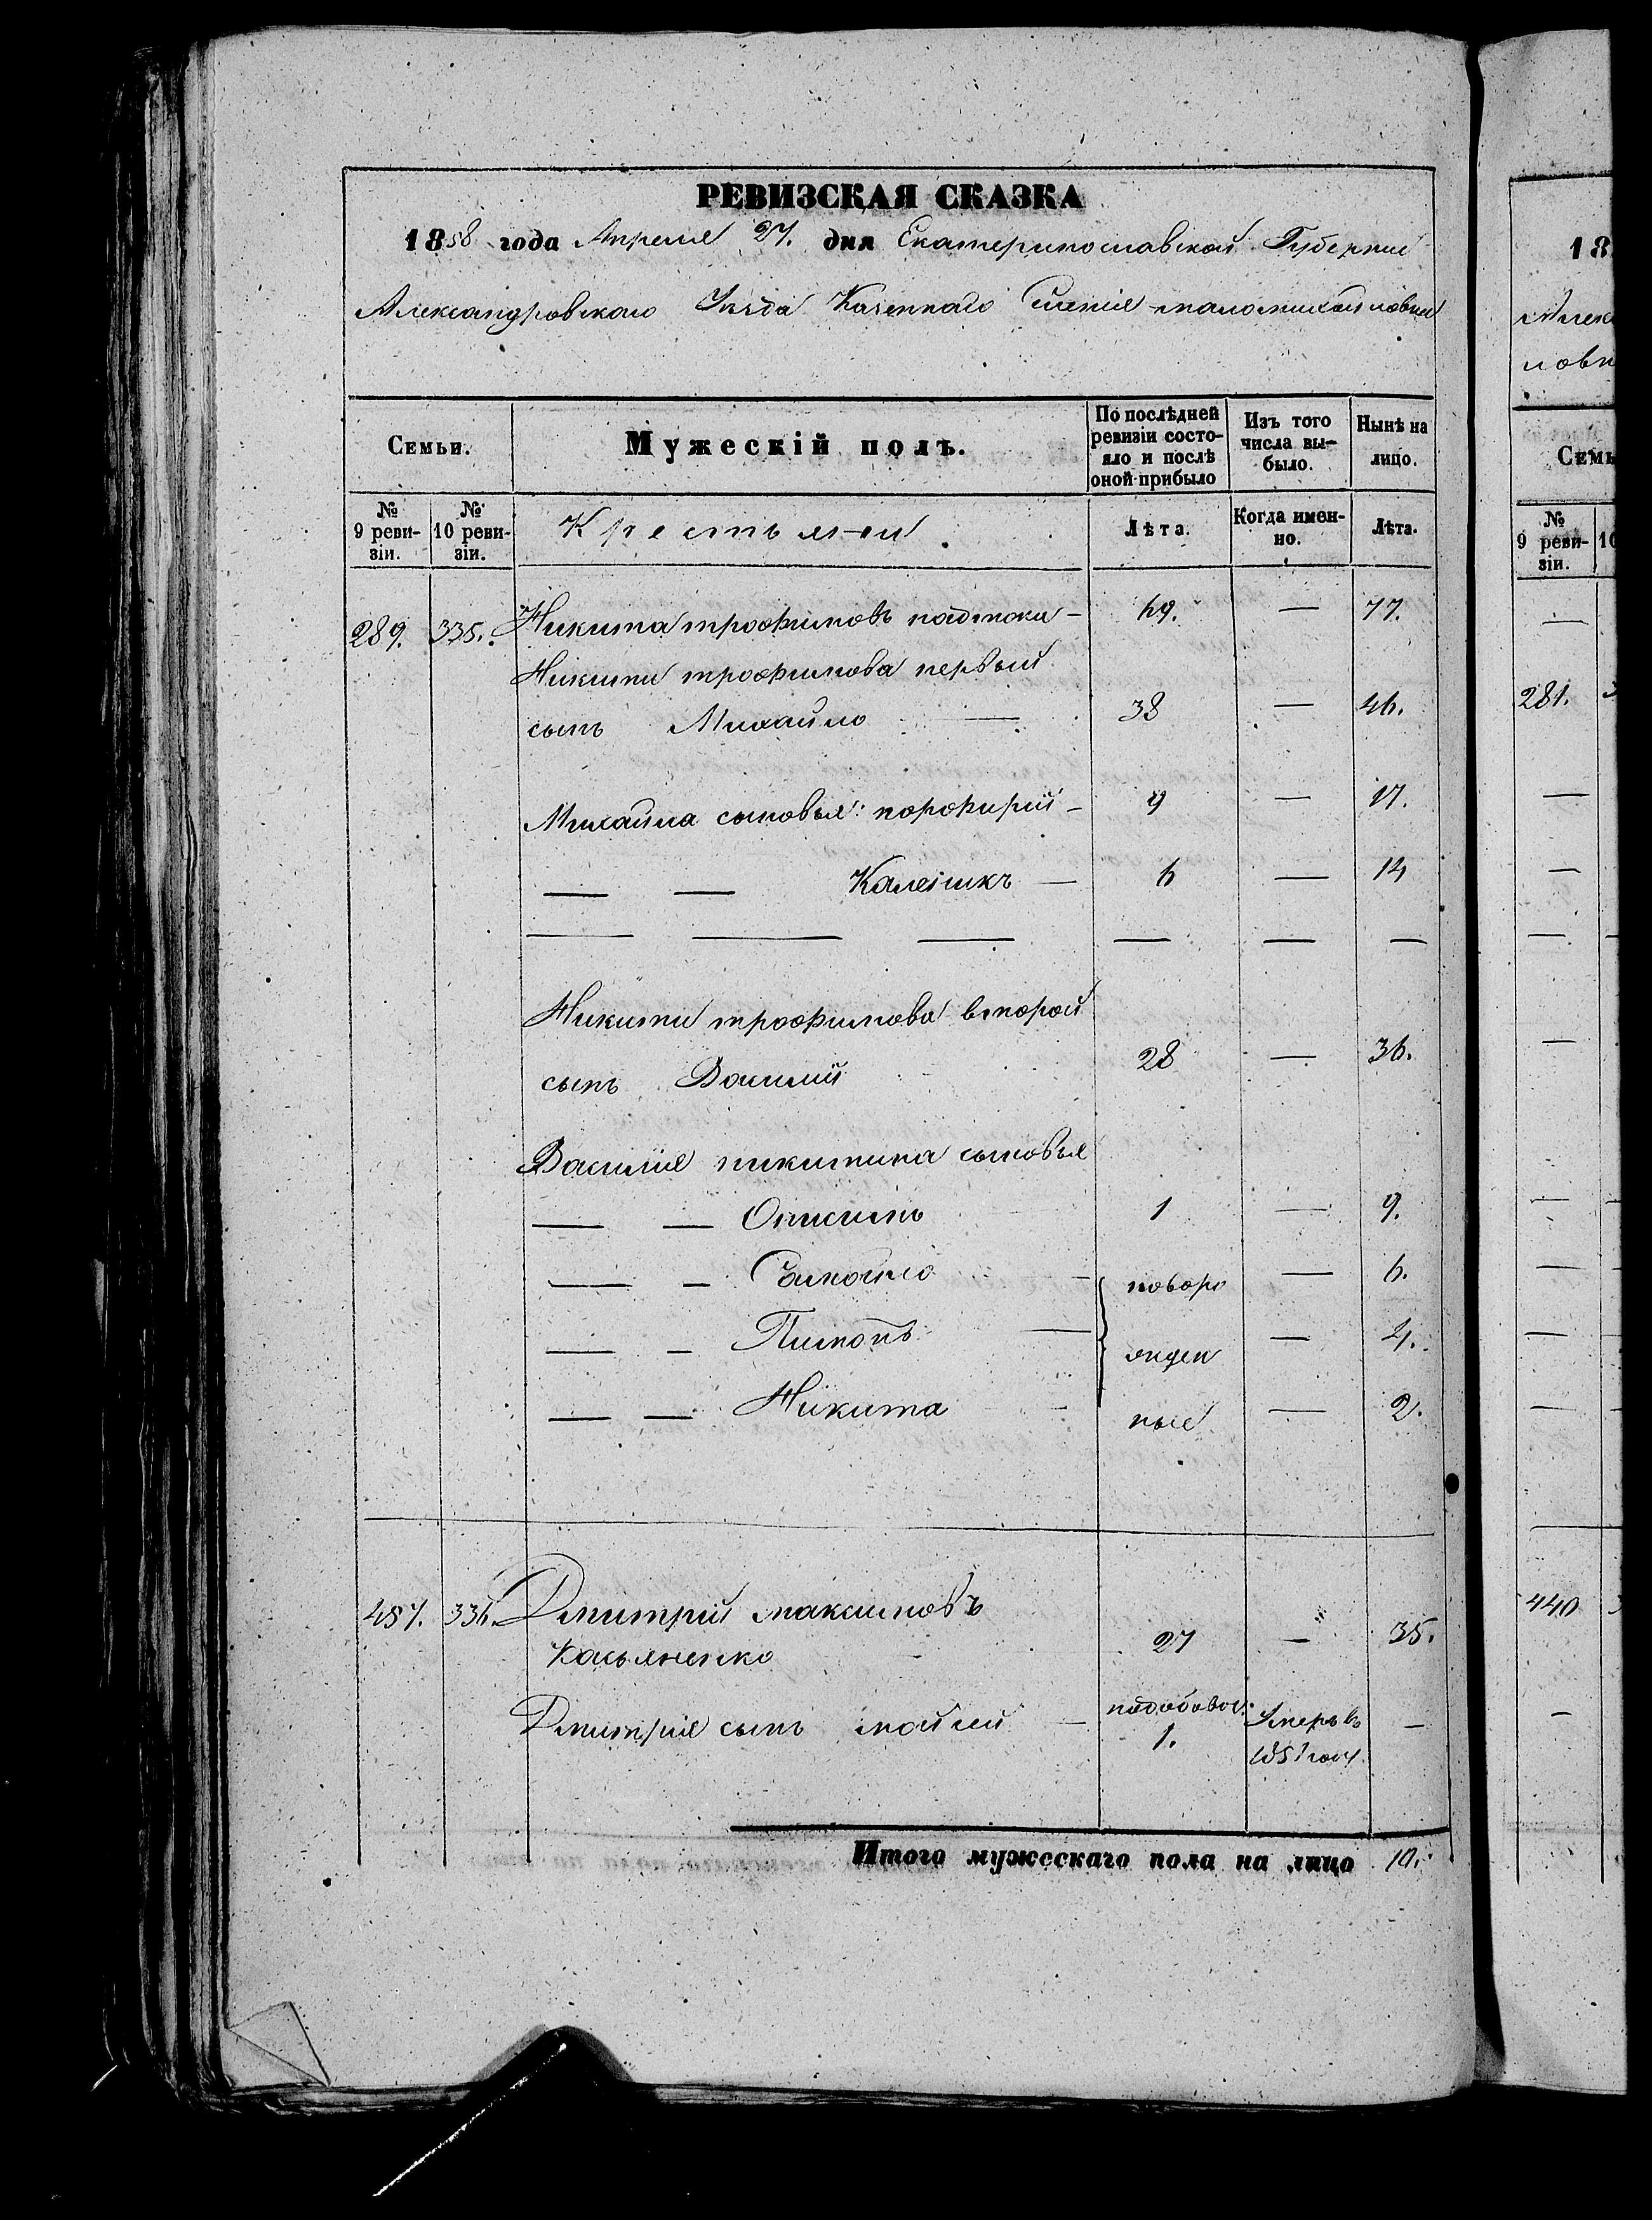 РЕВИЗСКАЯ СКАЗКА
1858 года Апреля 27. дня Екатеринославской Губернии
Александровского Уезда Казеннаго Маломихайловки
Семьи. Мужескій полъ. По послѣдней ревизіи состояло и послѣ оной прибыло Изъ того числа выбыло. Нынѣ на лицо.
№ 9 ревизіи. № 10 ревизіи. Крестьяне Лѣта. Когда именно. Лѣта.
289. 335. Никита трофимовъ 69. — 77.
Никиты трофимова первый
сынъ Михайло — 38 — 46.
Михайла сыновья: порофирий — 9 — 17.
— — — 6 — 14
— — — — — —
Никиты трофимова второй
сынъ Василий 28 — 36.
Василия никитина сыновья
— — Онисимъ 1 — 9.
— — Самойло новоро — 6.
— — Пимонъ — жден — 4.
— — Никита ные — 2.
457. 336. Дмитрий максимовъ
Касьяненко 27 — 35.
Дмитрия сынъ мойсей — 1. Умеръ въ —
1851 году
Итого мужескаго пола на лицо 10.
18
Алек
ловк
Семь
№ 9 ревизіи. 10
281.
440